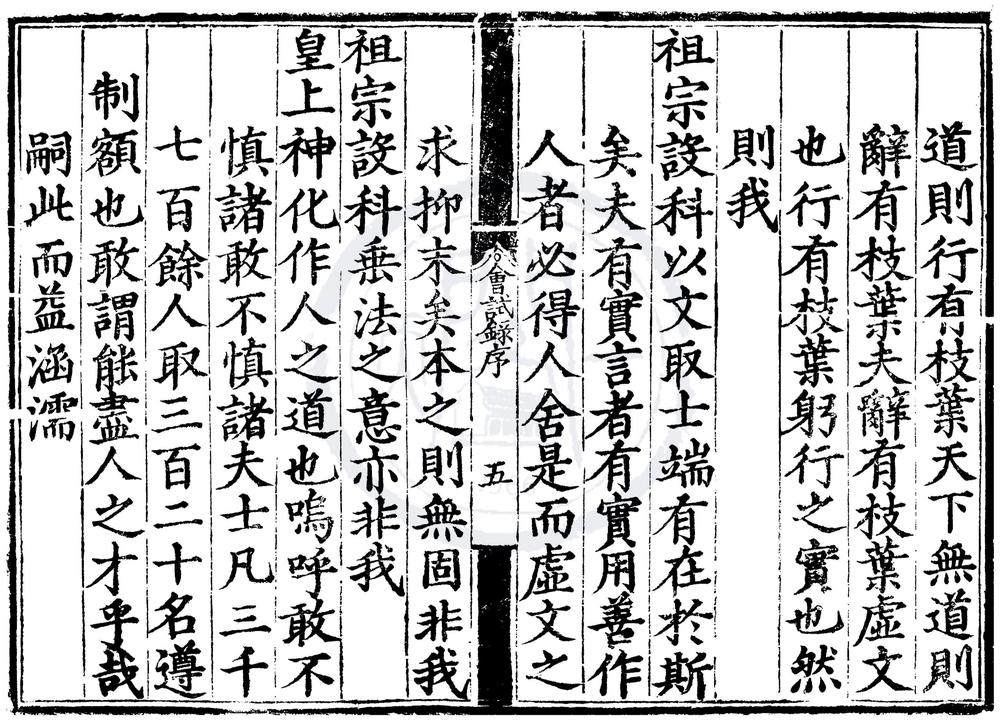 道則行有枝葉天下無道則
辭有枝葉夫辭有枝葉虛文
也行有枝葉躬行之實也然
則我
祖宗設科以文取士端有在於斯
矣夫有實言者有實用善作
人者必得人舍是而虛文之
會試錄序
五
求抑末矣本之則無固非我
祖宗設科垂法之意亦非我
皇上神化作人之道也嗚呼敢不
慎諸敢不慎諸夫士凡三千
七百餘人取三百二十名遵
制額也敢謂能盡人之才乎哉
嗣此而益涵濡